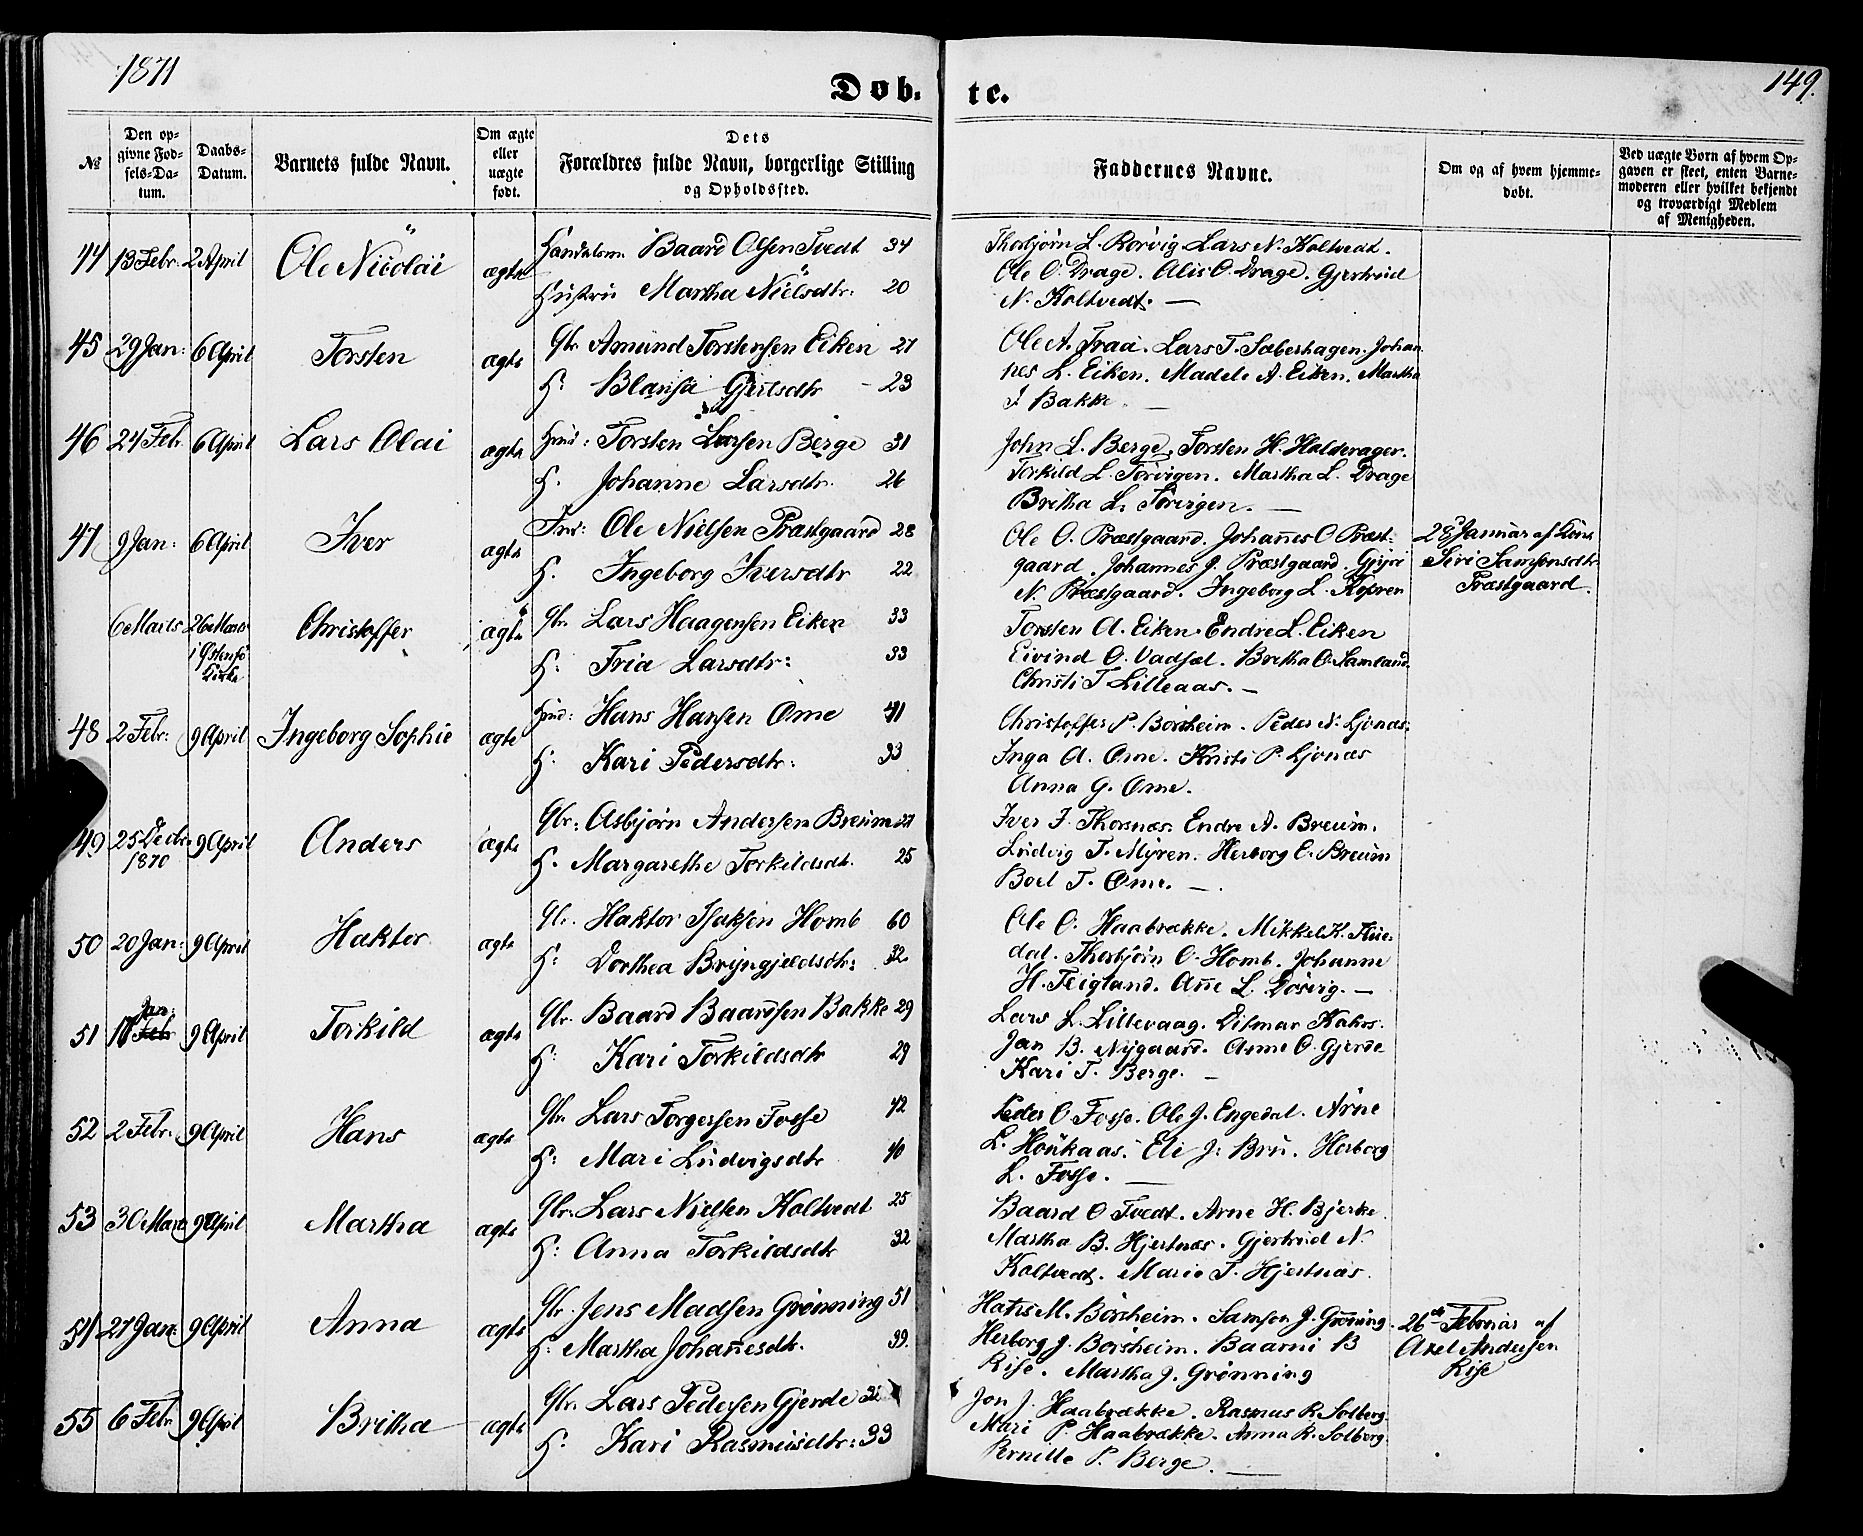 1871
149.
Døb-
te.
№
Den op-
givne Fød-
sels-Da-
tum.
Daabs-
Datum.
Barnets fulde Navn.
Om ægte
eller
uægte
født.
Dets
Forældres fulde Navn, borgerlige Stilling
og Opholdssted.
Faddernes Navne.
Om og af hvem hjemme-
døbt.
Ved uægte Børn af hvem Op-
gaven er skeet, enten Barne-
moderen eller hvilket bekjendt
og troværdigt Medlem
af Menigheden.
44 13 Febr. 2 April Ole Nicolai ægte Baard Olsen Tvedt 34
Hustru Martha Nielsdtr: 20
Thorbjørn L. Rørvig Lars N. Holtvedt.
Ole O. Drage. Alis O. Drage. Gjertrud
N. Holtvedt. —
45 29 Jan: 6 April Torsten ægte Gbr Amund Torstensen Eiken 27
H: Blansa Gjertsdtr - 23
Ole A. Traa. Lars T. Saberhagen. Johan
nes L. Eiken. Madele A. Eiken. Martha
I Bakke. —
46 24 Febr 6 April Lars Olai ægte Hmd: Torsten Larsen Berge 31
H. Johanne Larsdtr. 26
John L. Berge. Torsten H. Halderager.
Torkild L. Tørvigen. Martha L. Drage
Bretha L. Tørvigen. —
47 9 Jan: 6 April Iver ægte Ole Nielsen Præstgaard 28
H. Ingeborg Iversdtr 22
Ole O. Præstgaard. Johanes O Præst-
gaard. Johannes J. Præstgaard. Gjøri
N. Præstgaard. Ingeborg L. Kopren
28 Januar af Kone
Siri Samsonsdtr
Præstgaard.
6 Marts 26 Marts
i Østensø
Kirke
Christoffer ægte Gbr. Lars Haagensen Eiken 33
H: Tria Larsdtr: 33
Torsten A. Eiken. Endre L. Eiken
Eivind O. Vadsel. Bretha O. Samland.
Christi T Lilleaas. —
48 2 Febr: 9 April Ingeborg Sophie ægte Hmd: Hans Hansen Ome 41
H: Kari Pedersdtr: 33
Christoffer P. Børsheim. Peder N. Ljonæs.
Inga A. Ome. Kristi P. Ljonæs
Anna G. Ome.
49 25 Decbr
1870 9 April Anders ægte Gbr: Asbjørn Andersen Breum 27
H. Margarethe Torkildsdt. 25
Iver I. Thorsnæs. Endre A. Breum.
Ludvig T. Myren. Herborg E. Breum
Boel T. Ome. —
50 20 Jan: 9 April Haktor ægte Gbr. Haktor Isaksen Homb 60
H: Dorthea Bryngjeldsdtr: 32
Ole O. Haabrække. Mikkel K. Flue-
dal. Thorbjørn O. Homb. Johanne
H. Teigland. Ane L. Døsvig. —
51 18 Jan. Feb 9 April Torkild ægte Gbr. Baard Baardsen Bakke 29
H: Kari Torkildsdtr 29
Lars L. Lillevaag. Ditmar Kahrs.
Jan B. Nygaard. Anne O. Gjerde
Kari T. Berge. —
52 2 Febr. 9 April Hans ægte Gbr. Lars Torgersen Fosse 42
H: Mari Ludvigsdtr 40
Peder O Fosse. Ole J. Engedal. Arne
L. Houkaas. Eli J: Bru. Herborg
L. Fosse. —
53 30 Marts 9 April Martha ægte Gbr. Lars Nielsen Holtvedt 25
H: Anna Torkildsdtr 32
Baard O Tvedt. Arne H. Bjerke.
Martha B. Hjertnæs. Gjertrud N.
Holtvedt. Marie T. Hjertnæs.
54 27 Jan: 9 April Anna ægte Gbr. Jens Madsen Grønning 51
H: Martha Johanesdtr. 39.
Hans M. Børsheim. Samson J. Grønning.
Herborg J. Børsheim. Baarni B
Rise. Martha J. Grønning
26de Februar af
Axel Andersen
Rise
55 6 Febr 9 April Britha ægte Gbr. Lars Pedersen Gjerde 32
H: Kari Rasmusdtr: 33
Jon J. Haabrække. Rasmus R. Solberg.
Mari P. Haabrække. Anna R. Solberg.
Pernille P. Berge. —